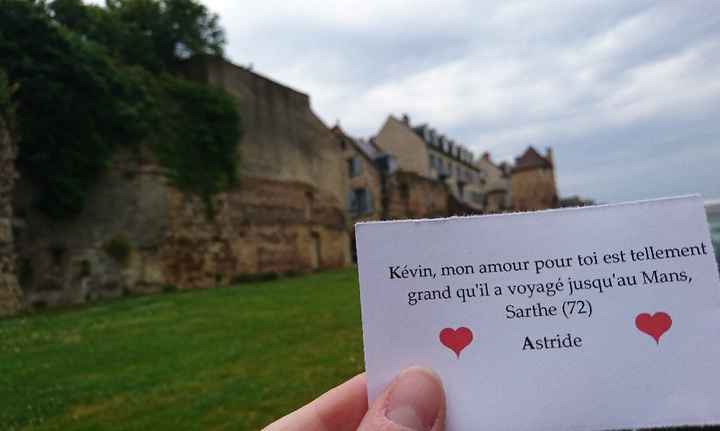 Kévin, mon amour pour toi est tellement
grand qu'il a voyagé jusqu'au Mans,
Sarthe (72)
Astride